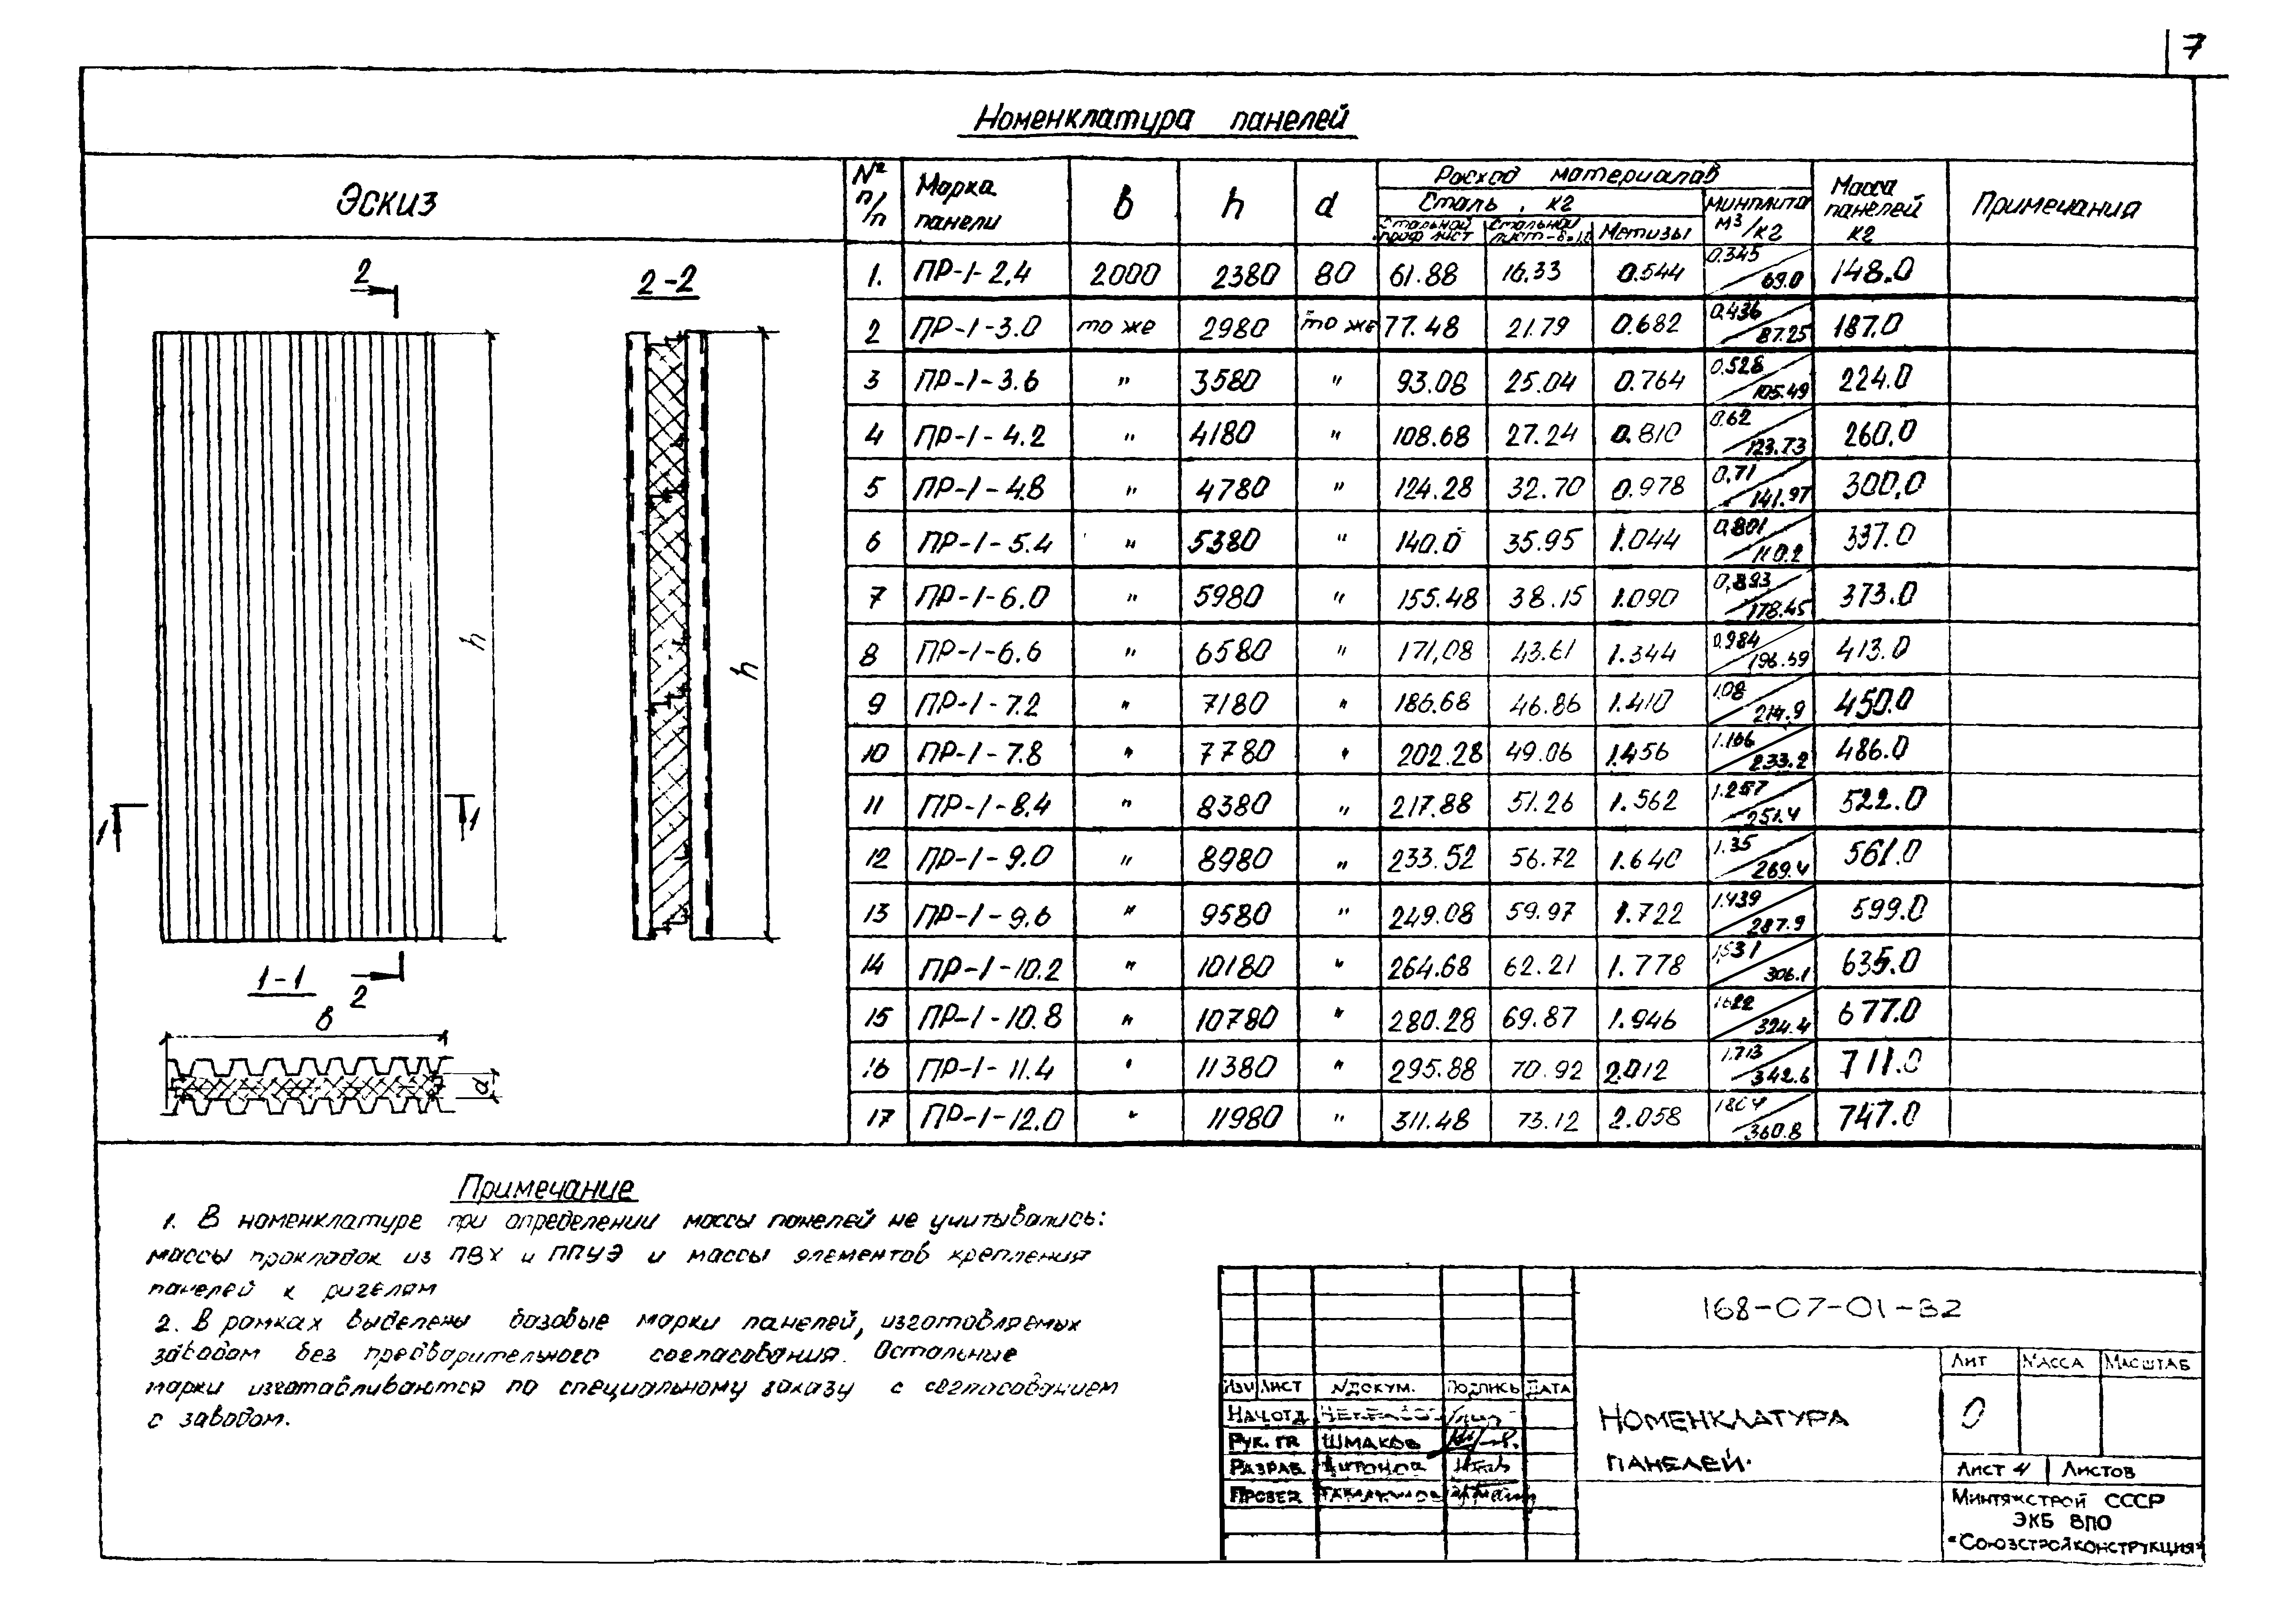 7
Номенклатура панелей
Эскиз
№ п/п Марка панели в h d Расход материалов Масса панелей кг Примечания
Сталь, кг минплита м³/кг
Стальной проф лист Стальной Метизы
1. ПР-1-2,4 2000 2380 80 61.88 16,33 0.544 0.345/69.0 148.0
2 ПР-1-3.0 то же 2980 то же 77.48 21.79 0.682 0,436/87.25 187.0
3 ПР-1-3.6 " 3580 " 93.08 25.04 0.764 0.528/105.49 224.0
4 ПР-1-4.2 " 4180 " 108.68 27.24 0.810 0.62/123.73 260.0
5 ПР-1-4.8 " 4780 " 124.28 32.70 0.978 0,71/141.97 300,0
6 ПР-1-5.4 " 5380 " 140.0 35.95 1.044 0,801/110.2 337.0
7 ПР-1-6.0 " 5980 " 155.48 38.15 1.090 0,893/178.45 373.0
8 ПР-1-6.6 " 6580 " 171,08 43.61 1.344 0.984/196.59 413.0
9 ПР-1-7.2 " 7180 " 186.68 46.86 1.410 1.08/214.9 450.0
10 ПР-1-7.8 " 7780 " 202.28 49.06 1.456 1.166/233.2 486.0
11 ПР-1-8,4 " 8380 " 217.88 51.26 1.562 1.257/251.4 522.0
12 ПР-1-9.0 " 8980 " 233.52 56.72 1.640 1.35/269.4 561.0
13 ПР-1-9.6 " 9580 " 249.08 59.97 1.722 1.439/287.9 599.0
14 ПР-1-10.2 " 10180 " 264.68 62.21 1.778 1,531/306.1 635.0
15 ПР-1-10.8 " 10780 " 280.28 69.87 1.946 1622/324.4 677.0
16 ПР-1-11.4 " 11380 " 295.88 70.92 2.012 1.713/342.6 711.0
17 ПР-1-12.0 " 11980 " 311.48 73.12 2.058 1804/360.8 747.0
2
2-2
h
h
1
1
1-1
2
в
d
Примечание
1. В номенклатуре при определении массы панелей не учитывались:
массы прокладок из ПВХ и ППУЭ и массы элементов крепления
панелей к ригелям
2. В рамках выделены базовые марки панелей, изготовляемых
заводом без предварительного согласования. Остальные
марки изготавливаются по специальному заказу с согласованием
с заводом.
168-07-01-В2
Изм Лист №докум. Подпись Дата
Нач.отд
Рук. гр Шмаков
Разраб.
Провер
Номенклатура
панелей.
Лит Масса Масштаб
О
Лист 4 Листов
Минтяжстрой СССР
ЭКБ ВПО
"Союзстройконструкция"